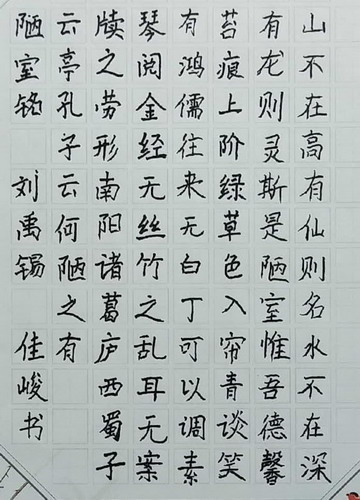 山不在高有仙则名水不在深
有龙则灵斯是陋室惟吾德馨
苔痕上阶绿草色入帘青谈笑
有鸿儒往来无白丁可以调素
琴阅金经无丝竹之乱耳无案
牍之劳形南阳诸葛庐西蜀子
云亭孔子云何陋之有
陋室铭 刘禹锡 佳峻书